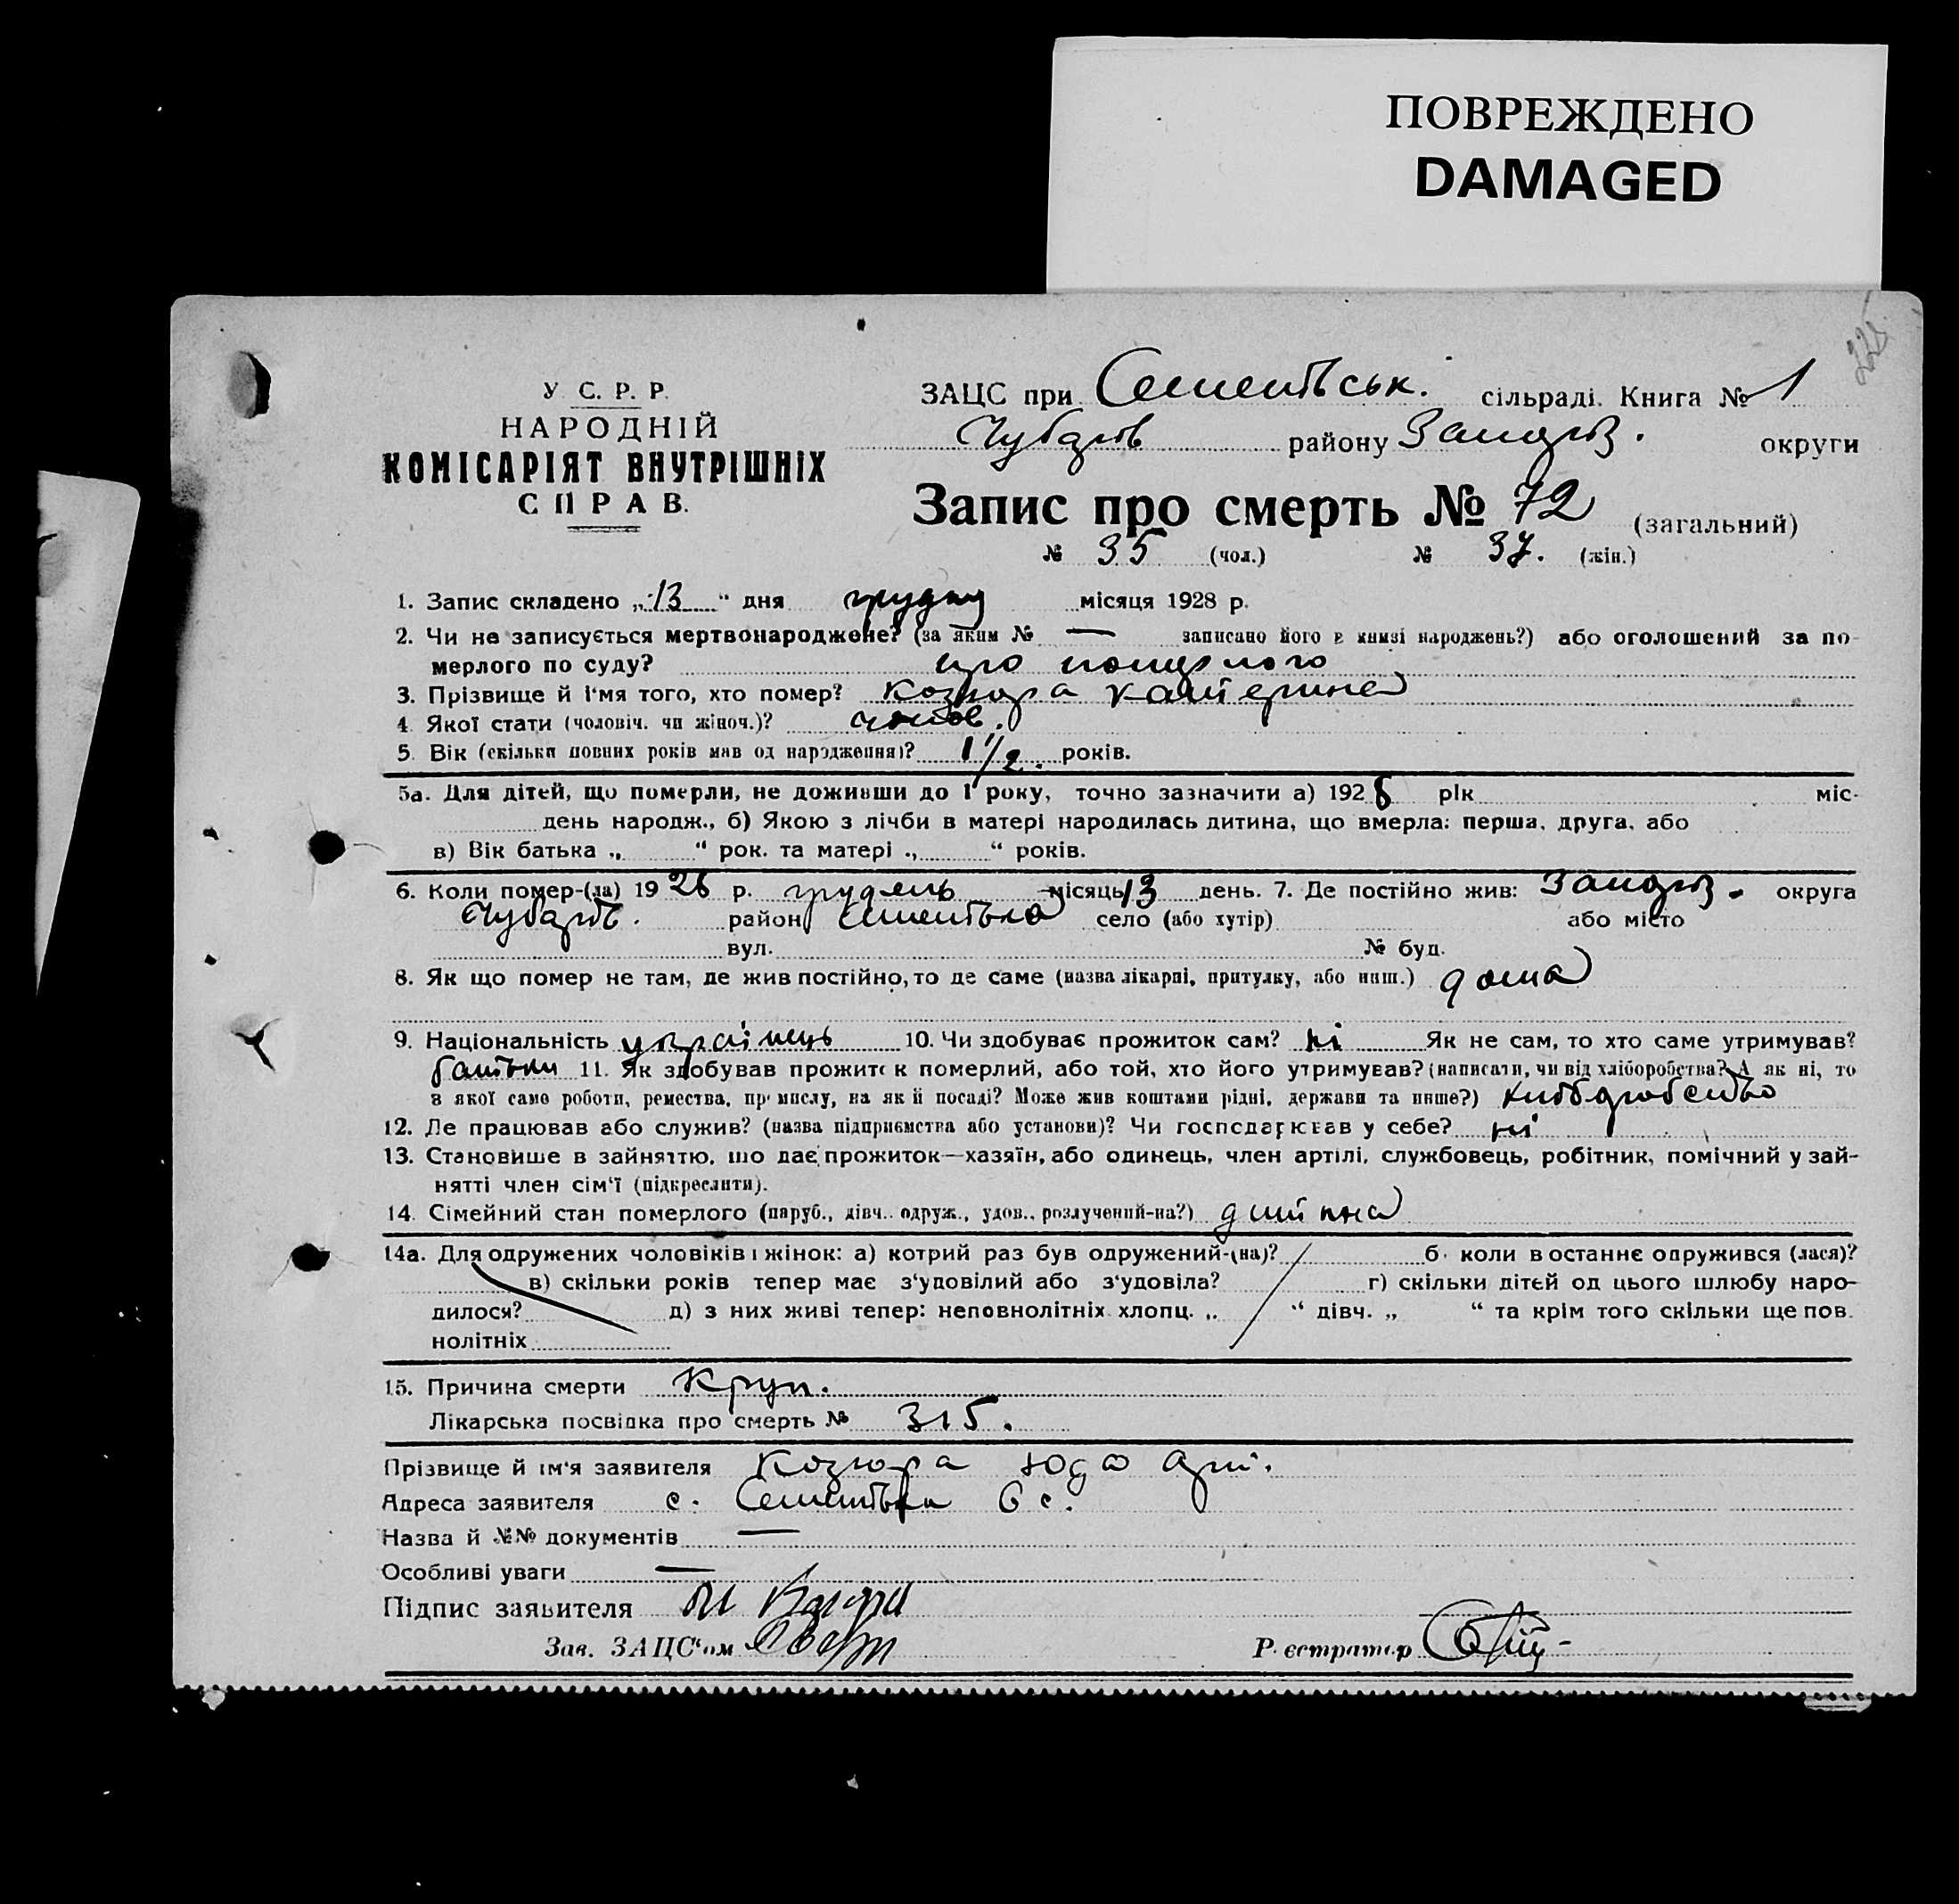 ПОВРЕЖДЕНО
DAMAGED
225
У. С. Р. Р.
НАРОДНІЙ
КОМІСАРІЯТ ВНУТРІШНІХ
СПРАВ.
ЗАЦС при Сементівськ. сільраді. Книга № 1
Чубарів району Запоріз. округи
Запис про смерть № 72 (загальний)
№ 35 (чол.) № 37. (жін.)
1. Запис складено „13“ дня грудня місяця 1928 р.
2. Чи не записується мертвонароджене? (за яким № — записано його в книзі народжень?) або оголошений за по-
мерлого по суду? про померлого
3. Прізвище й ім'я того, хто помер? Козюра Катерина
4. Якої статі (чоловіч. чи жіноч.)?
5. Вік (скільки повних років мав од народження)? 1 1/2. років.
5а. Для дітей, що померли, не доживши до 1 року, точно зазначити а) 1928 рік міс-
день народж., б) Якою з лічби в матері народилась дитина, що вмерла: перша, друга, або
в) Вік батька „ “ рок. та матері „ “ років.
6. Коли помер-(ла) 1928 р. грудень місяць 13 день. 7. Де постійно жив: Запоріз. округа
Чубарів. район Сементівка село (або хутір) або місто
вул. № буд.
8. Як що помер не там, де жив постійно, то де саме (назва лікарні, притулку, або инш.) дома
9. Національність українець 10. Чи здобуває прожиток сам? ні Як не сам, то хто саме утримував?
батьки 11. Як здобував прожиток померлий, або той, хто його утримував? (написати, чи від хліборобства? А як ні, то
з якої саме роботи, ремества, промислу, на якій посаді? Може жив коштами рідні, держави та инше?) хліборобство
12. Де працював або служив? (назва підприємства або установи)? Чи господарював у себе? ні
13. Становище в зайняттю, що дає прожиток—хазяїн, або одинець, член артілі, службовець, робітник, помічний у зай-
нятті член сім'ї (підкреслити).
14. Сімейний стан померлого (паруб., дівч., одруж., удов., розлучений-на?) дитина
14а. Для одружених чоловіків і жінок: а) котрий раз був одружений-(на)? б. коли востаннє одружився (лася)?
в) скільки років тепер має з'удовілий або з'удовіла? г) скільки дітей од цього шлюбу наро-
дилося? д) з них живі тепер: неповнолітніх хлопц. „ “ дівч. „ “ та крім того скільки ще пов.
нолітніх
15. Причина смерти Круп.
Лікарська посвідка про смерть № 315.
Прізвище й ім'я заявителя Козюра
Адреса заявителя с. Сементівка
Назва й №№ документів —
Особливі уваги —
Підпис заявителя
Зав. ЗАЦС'ом
Реєстратор